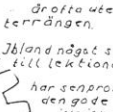 drofta ute
terrängen.
Ibland något s
till lektion
har senpro
den gode